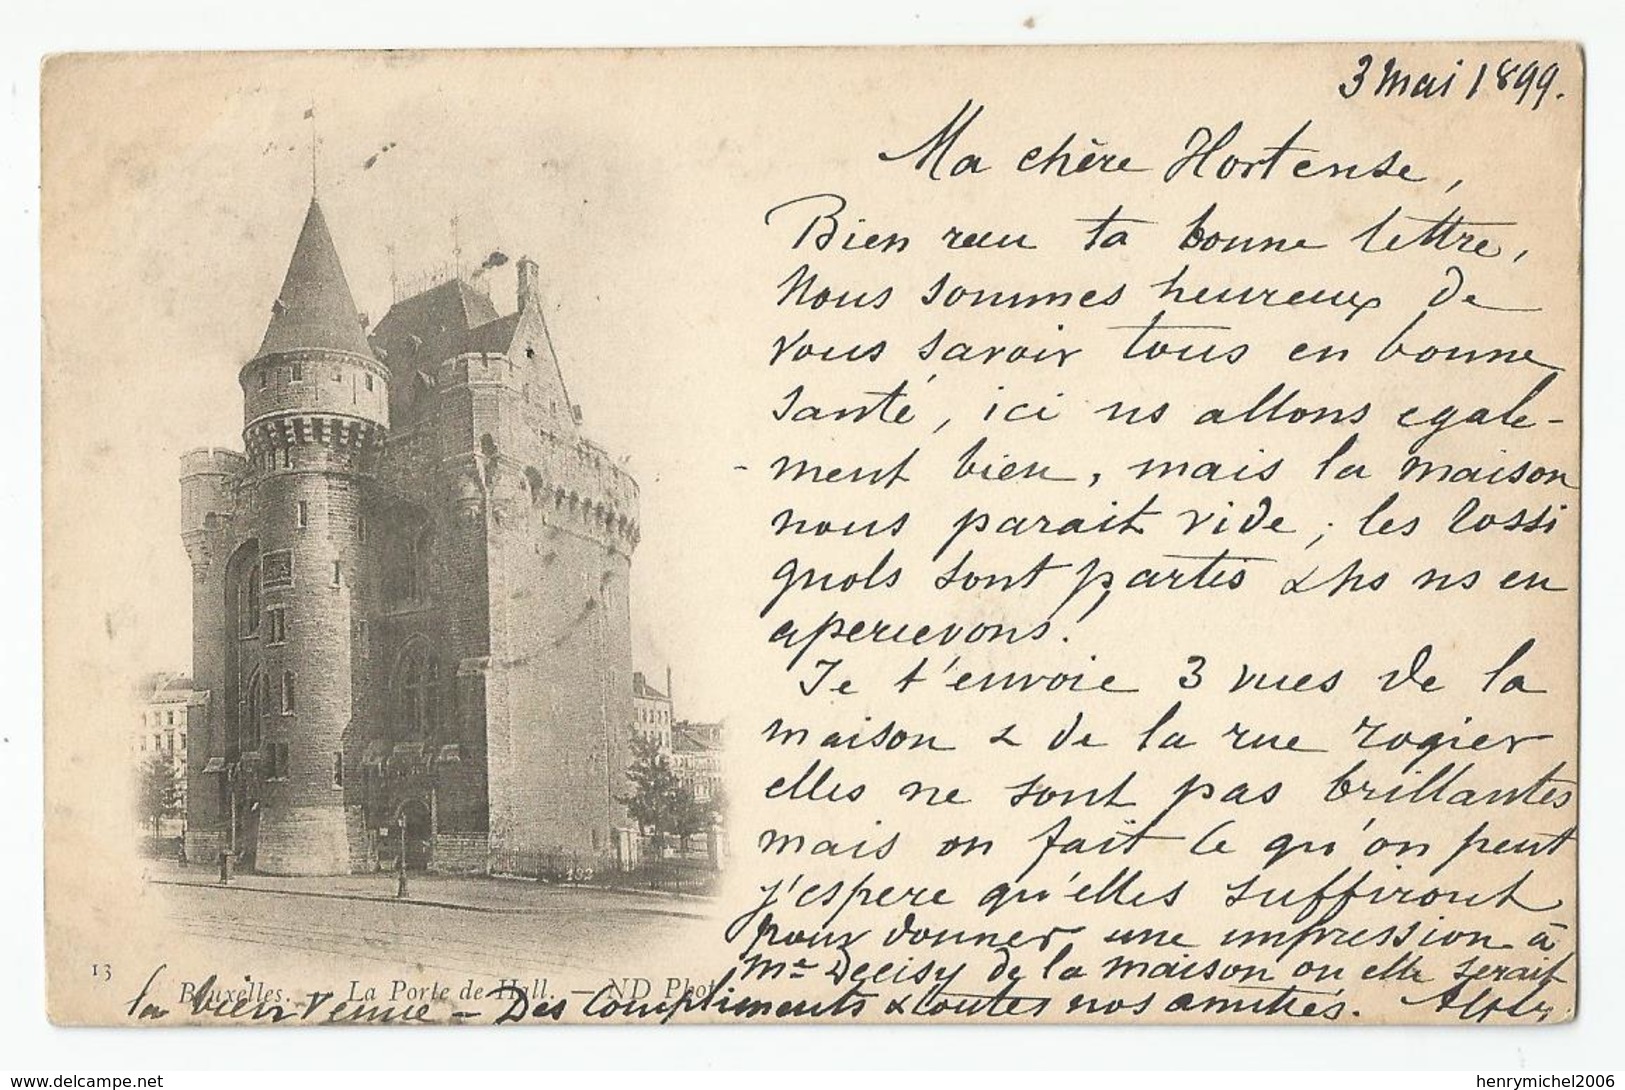 3 Mai 1899.
Ma chère Hortense,
Bien reçu ta bonne lettre,
Nous sommes heureux de
vous savoir tous en bonne
santé, ici ns allons egale-
-ment bien, mais la maison
nous parait vide, les rossi
gnols sont partis & ns en
apercevons.
Je t'envoie 3 vues de la
maison & de la rue Rogier
elles ne sont pas brillantes
mais on fait ce qu'on peut
j'espere qu'elles suffiront
pour donner une impression à
Me de la maison ou elle serait
la bien venue - Des Compliments & toutes nos amitiés.
13
Bruxelles. - La Porte de Hall. - ND Phot
132
delcampe.net
henrymichel2006